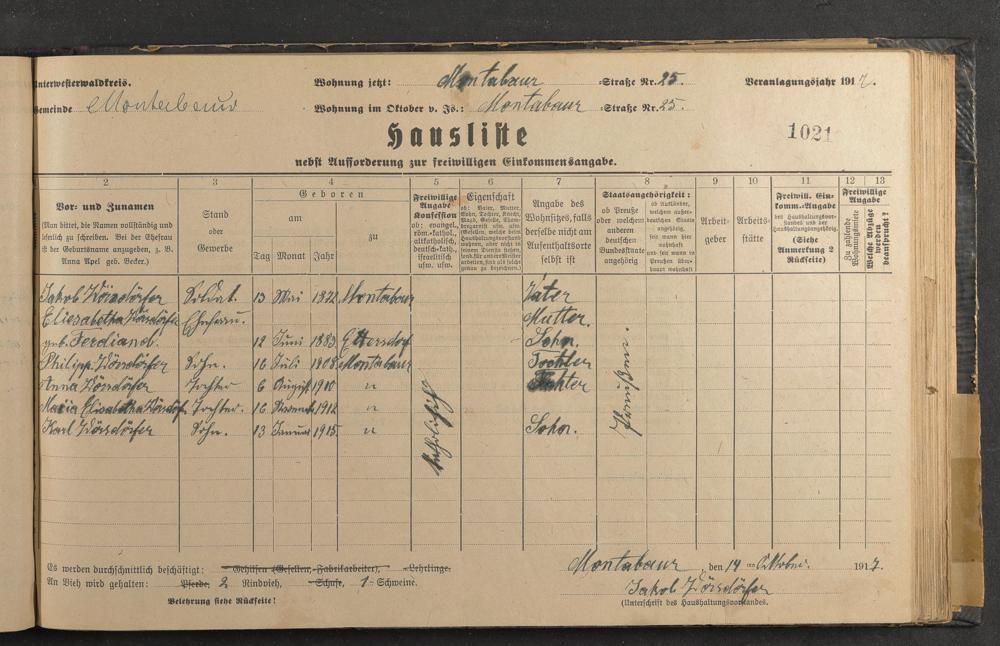 Unterwesterwaldkreis. Wohnung jetzt: Montabaur Straße Nr. 25. Veranlagungsjahr 1917.
Gemeinde Montabaur Wohnung im Oktober v. Js.: Montabaur Straße Nr. 25.
Hausliste 1021
nebst Aufforderung zur freiwilligen Einkommensangabe.
2 3 4 5 6 7 8 9 10 11 12 13
Vor- und Zunamen
(Man bittet, die Namen vollständig und leserlich zu schreiben. Bei der Ehefrau ist der Geburtsname anzugeben, z. B. Anna Apel geb. Becker.)
Stand oder Gewerbe
Geboren
am zu
Tag Monat Jahr
Freiwillige Angabe Konfession
ob: evangel., röm.-kathol., altkatholisch, deutsch-kath., israelitisch usw. usw.
Eigenschaft
Angabe des Wohnsitzes, falls derselbe nicht am Aufenthaltsorte selbst ist
Staatsangehörigkeit:
ob Preuße oder welchem anderen deutschen Bundesstaate angehörig
ob Ausländer, welchem außerdeutschen Staate angehörig, seit wann hier wohnhaft und seit wann in Preußen überhaupt wohnhaft
Arbeitgeber
Arbeitsstätte
Freiwill. Einkomm.-Angabe
(Siehe Anmerkung 2 Rückseite)
Freiwillige Angabe
Zu zahlende Wohnungsmiete
Welche Abzüge werden beansprucht?
Jakob Wörsdörfer Soldat. 13 Mai 1872 Montabaur Vater
Eliesabetha Wörsdörfer Ehefrau. Mutter.
geb. Ferdinand. 12 Juni 1883 Ettersdorf Sohn.
Philipp Wörsdörfer Sohn. 16 Juli 1908 Montabaur Tochter
Anna Wörsdörfer Tochter 6 August 1910 " Tochter
Maria Elisabetha Wörsdörf. Tochter. 16 Novemb. 1912 "
Karl Wörsdörfer Sohn. 13 Januar 1915. " Sohn.
katholisch
Preußen.
Es werden durchschnittlich beschäftigt: Gehilfen (Gesellen, Fabrikarbeiter), Lehrlinge.
An Vieh wird gehalten: Pferde, 2 Rindvieh, Schafe, 1 Schweine.
Belehrung siehe Rückseite!
Montabaur, den 14 ten Oktober. 1917.
Jakob Wörsdörfer
(Unterschrift des Haushaltungsvorstandes.